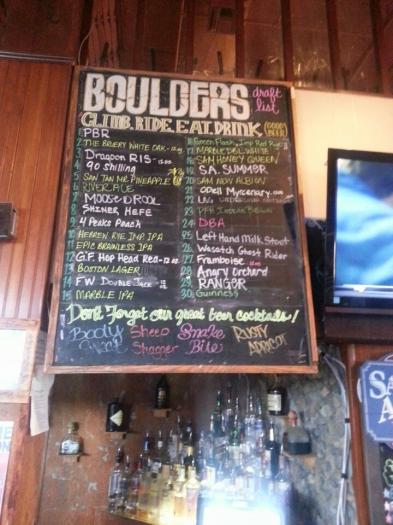 BOULDERS draft list
CLIMB. RIDE. EAT. DRINK GOOD BEER
1. PBR
2. THE BRUERY WHITE OAK
3. Dragoon RIS
4. 90 Shilling
5. SAN TAN MR. PINEAPPLE
6. RIVER ALE
7. MOOSE DROOL
8. SHINER HEFE
9. 4 Peaks Peach
10. HERREN RYE IMP. IPA
11. EPIC BRAINLESS IPA
12. G.F. Hop Head Red
13. BOSTON LAGER
14. FW DOUBLE JACK
15. MARBLE IPA
16. Green Flash Imp Red Rye
17. MARBLE DBL WHITE
18. SAM HONEY QUEEN
19. S.A. SUMMER
20. SAM NEW ALBION
21. ODELL Myrcenary
22.
23.
24. DBA
25. Left Hand Milk Stout
26. Wasatch Ghost Rider
27. Framboise
28. Angry Orchard
29. RANGER
30. Guinness
Don't Forget our great beer cocktails!
Body Sheep Snake RUSTY
Shagger Bite APRICOT
SA